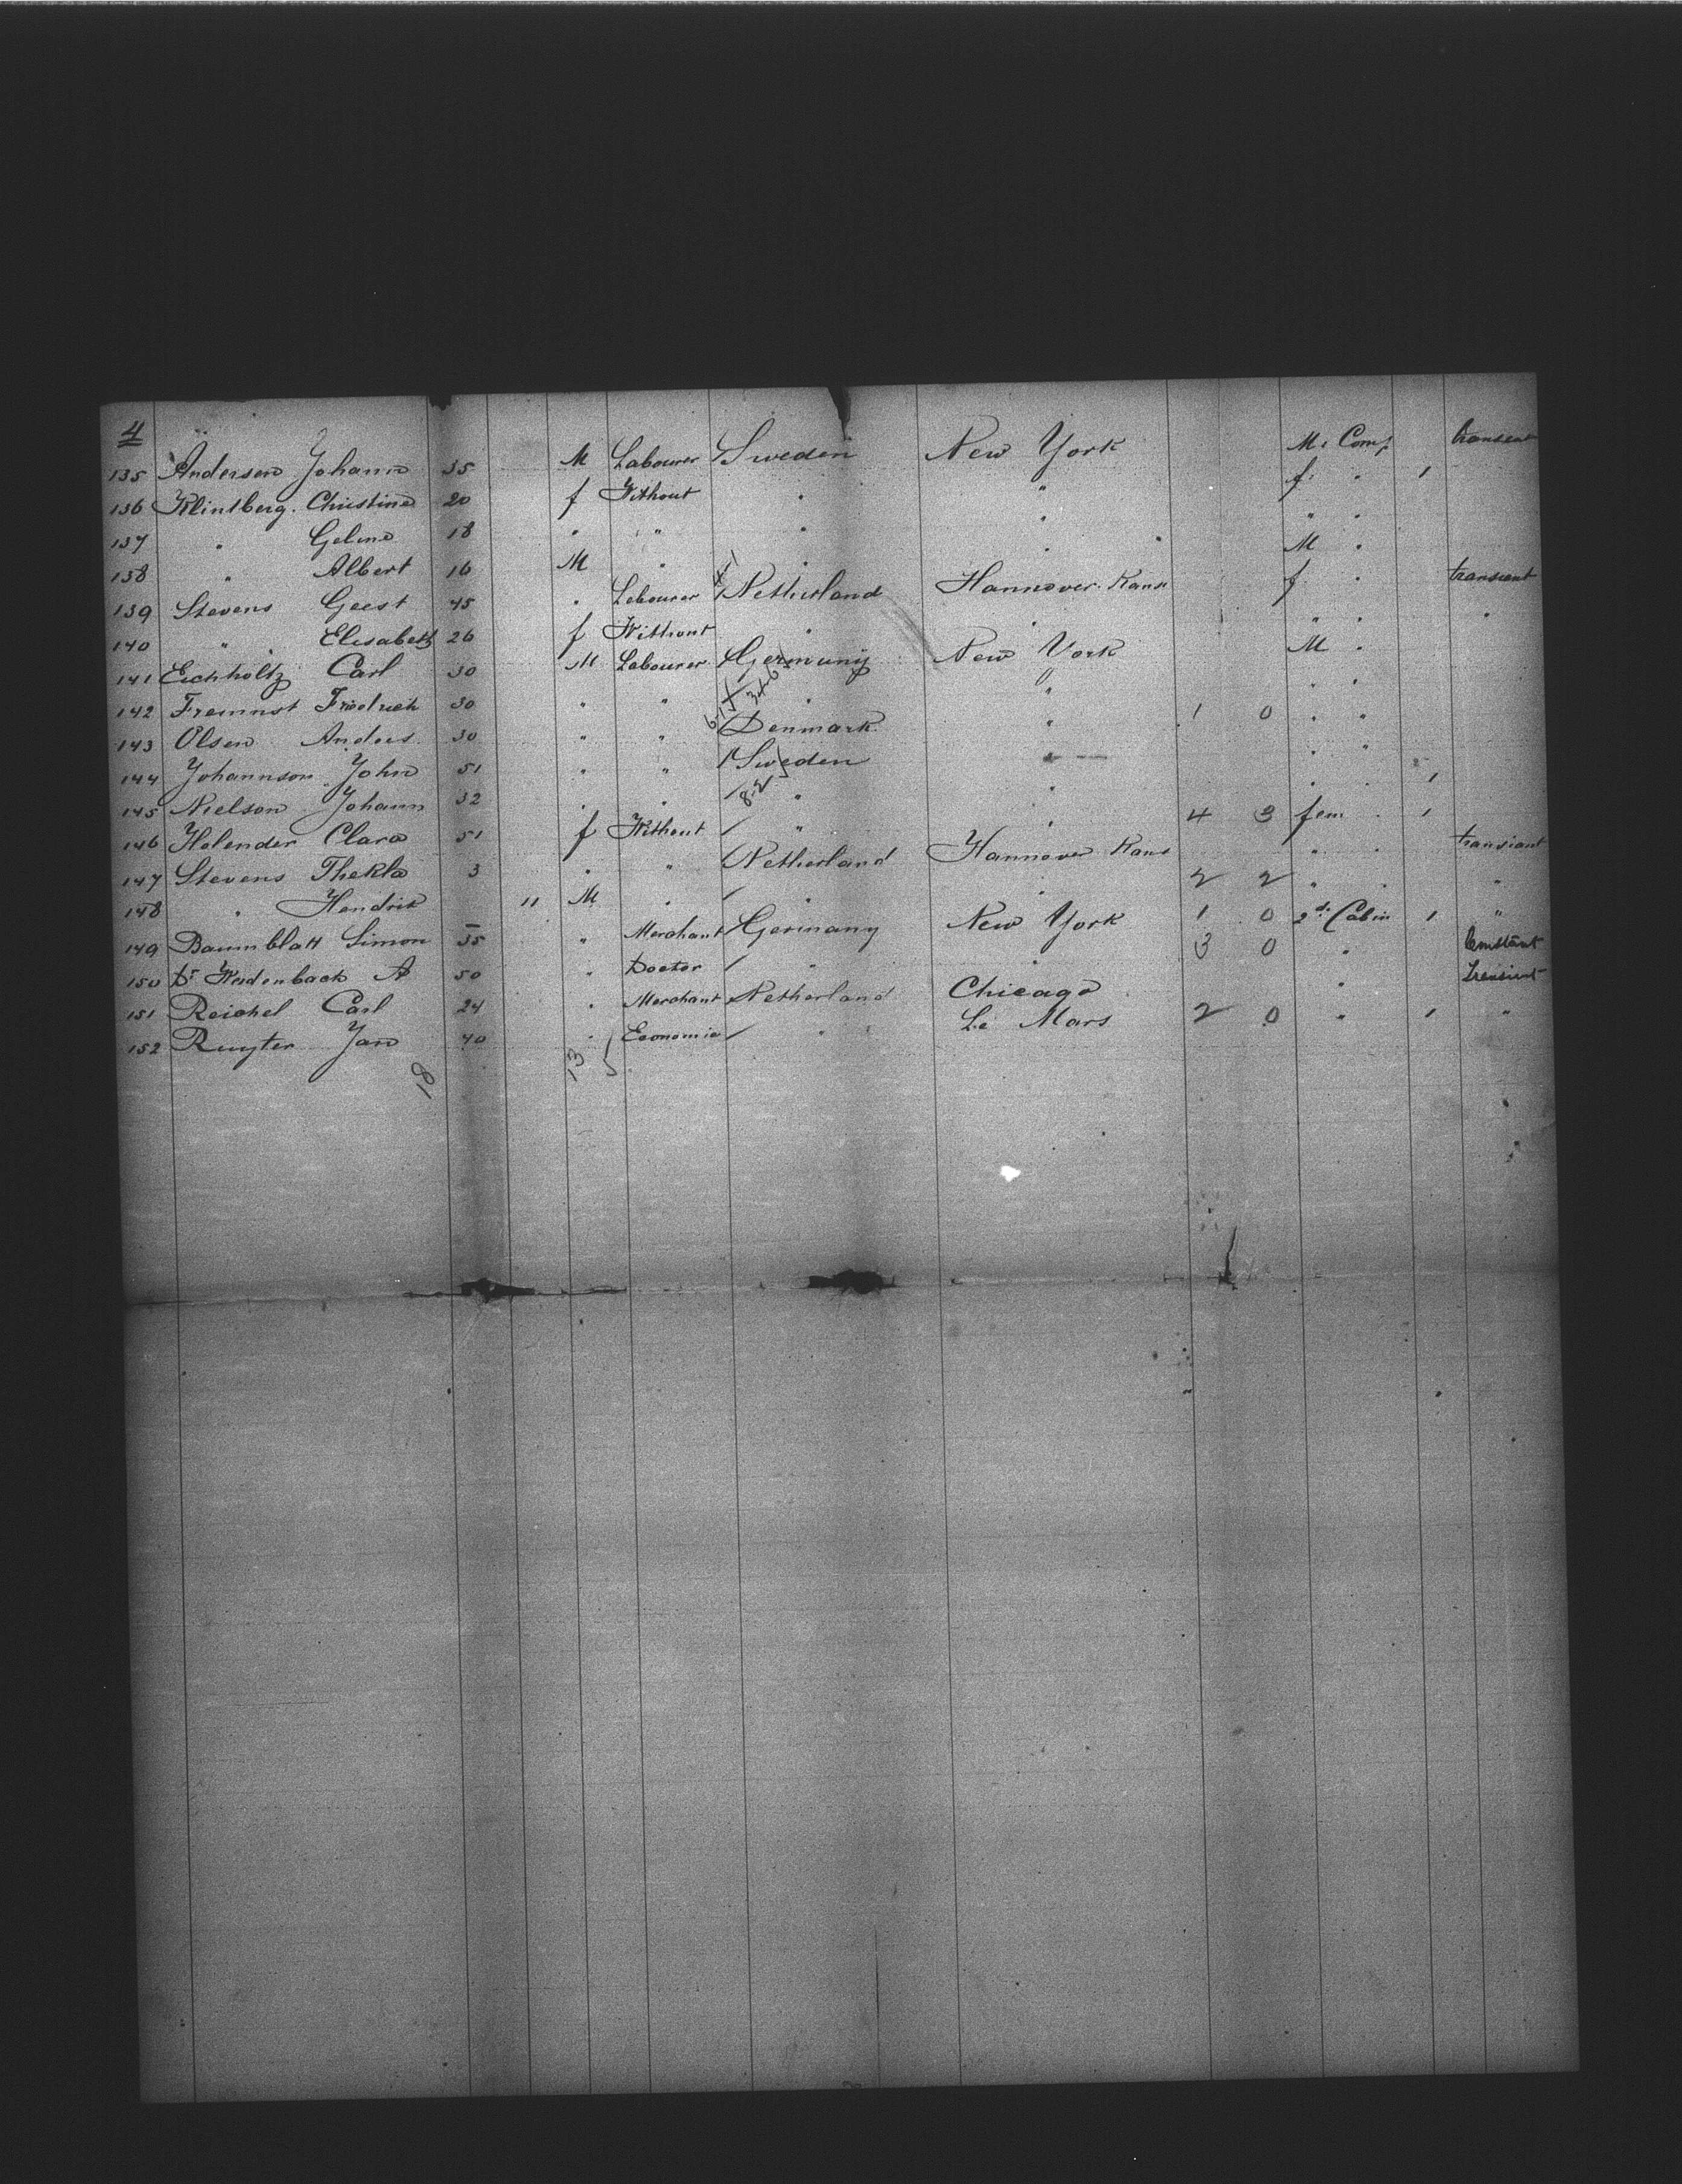 4
135 Andersen Johann 35 M Labourer Sweden New York M. Comp transent
136 Klintberg. Christine 20 f Without " " f. " 1
137 " 18 " " " " " "
138 " Albert 16 M " " " M "
139 Stevens Geest 45 " Labourer Netherland Hannover Kans f " transient
140 " Elisabeth 26 f Without " " " " "
141 Eichholtz Carl 30 M Labourer Germany New York M "
142 Friedrich 30 " " " " " "
143 Olsen Anders 30 " " Denmark " 1 0 " "
144 Johannson John 51 " " Sweden " " "
145 Nielson Johann 32 " " " " " " 1
146 Holender Clara 51 f Without " " 4 3 fem " 1
147 Stevens Thekla 3 " " Netherland Hannover Kans " " transiant
148 " Hendrik 11 M " " " 2 2 " " "
149 Baumblatt Simon 35 " Merchant Germany New York 1 0 2d. Cabin 1 "
150 Dr A 50 " Doctor " " 3 0 "
151 Reichel Carl 24 " Merchant Netherland Chicago " transient
152 Ruyter Jan 40 " Economie " Le Mars 2 0 " 1 "
18 13 5